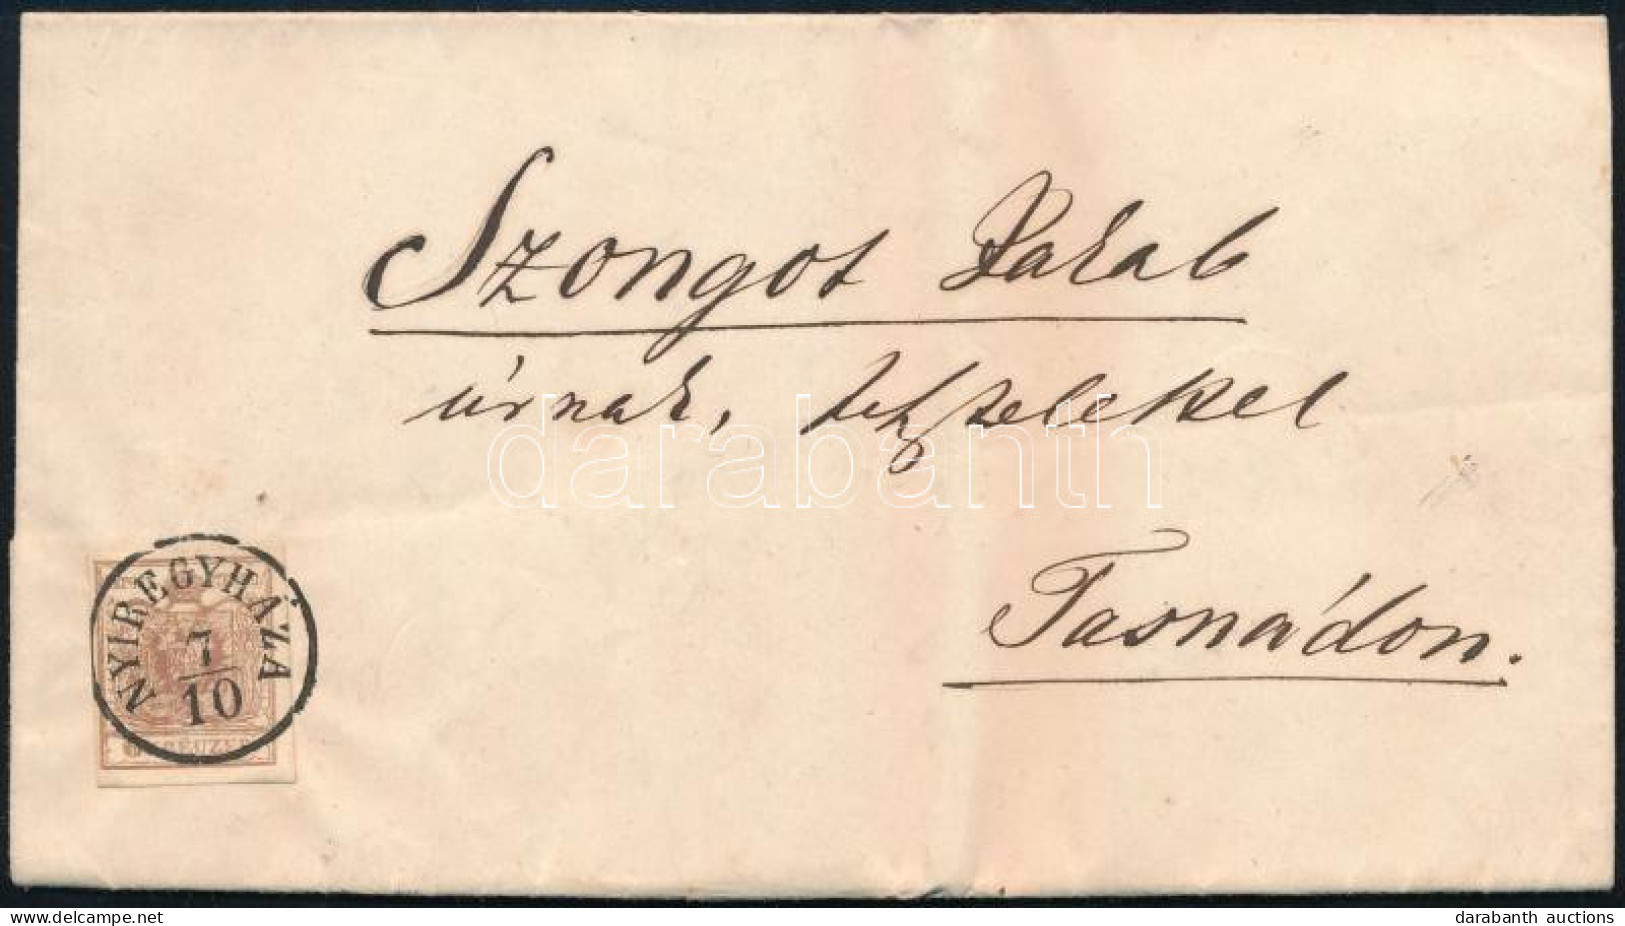 Szongot Jakab
úrnak,
darabanth
Tasnádon.
NYIREGYHÁZA
7
10
6 KREUZER
www.delcampe.net
darabanth auctions